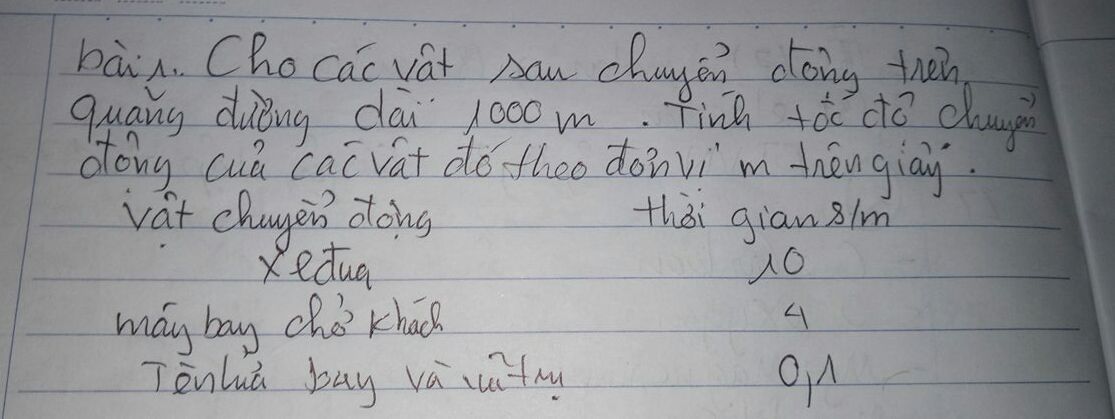 bài 1. Cho các vật sau chuyển động trên
quãng đường dài 1000 m. Tính tốc độ chuyển
động của các vật đó theo đơn vị m trên giây.
vật chuyển động thời gian s/m
xe đua 10
máy bay chở khách 4
Tên lửa bay và vũ trụ 0,1